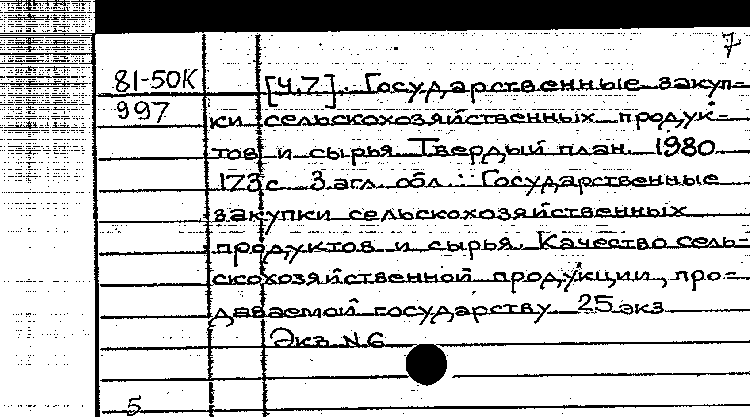 7
81-50К [Ч.7]. Государственные закуп=
997 ки сельскохозяйственных продук=
тов и сырья. Твердый план. 1980.
173 с. Загл. обл.: Государственные
закупки сельскохозяйственных
продуктов и сырья. Качество сель=
скохозяйственной продукции, про=
даваемой государству. 25 экз.
Экз. N 6
5